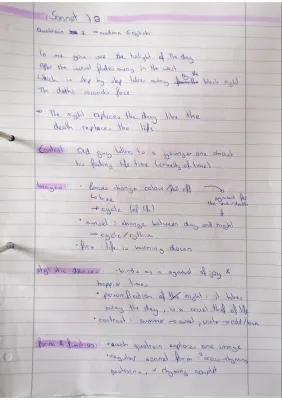 Sonnet 73
Quatrain 2 - modern English
In me you see the twilight of the day
After the sunset fades away in the west
Which is step by step taken away by the black night
The death's seconds face
→ The night replaces the day like the
death replaces the life
Content: Old guy talks to a younger one about
his fading life time
Images: • leaves change colour, fall off
↳ tree
→ cycle (of life)
symbol for
• sunset: change between day and night
→ cycle/rythm
• fire: life is burning down
stylistic devices: • birds as a symbol of joy &
happier times
• personification of night: it takes
away the day, is a cruel thief of life
• contrast: summer → , winter → cold
Form & function: • each quatrain explores one image
• regular sonnet form: cross-rhyming
quatrains, rhyming couplet